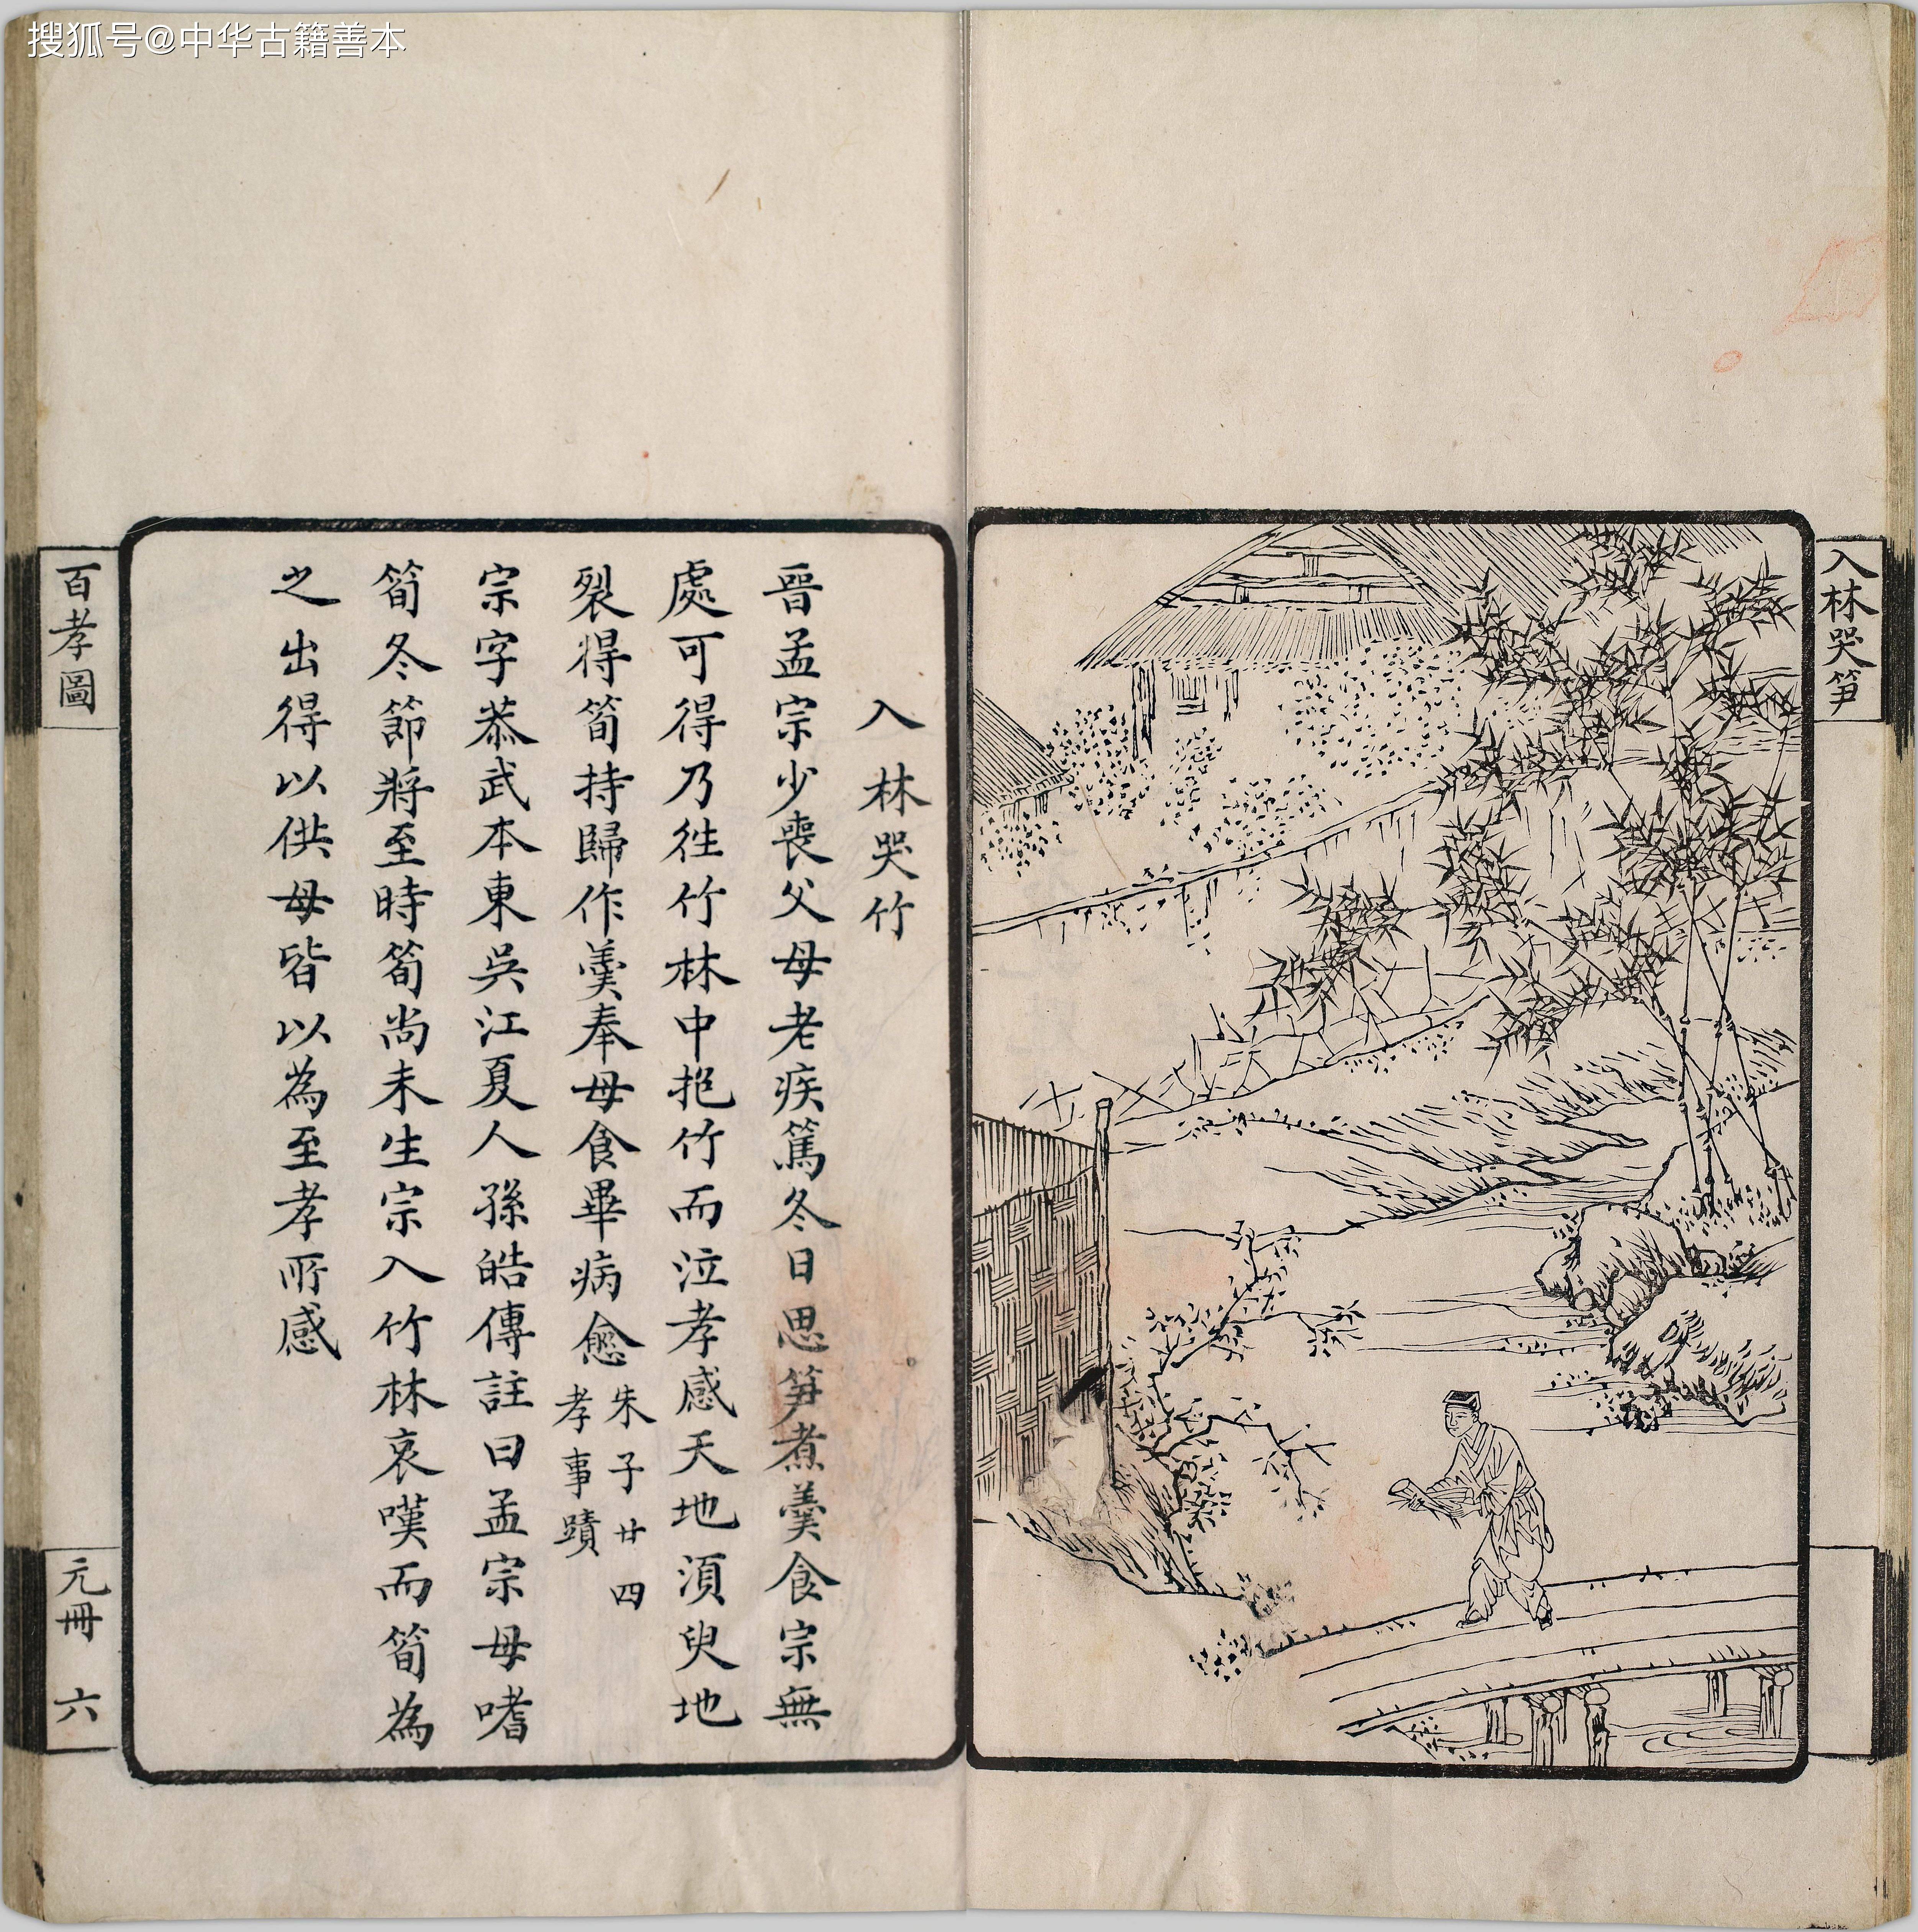 搜狐号@中华古籍善本
入林哭笋
入林哭竹
晉孟宗少喪父母老疾篤冬日思笋煮羹食宗無
處可得乃徃竹林中抱竹而泣孝感天地湏臾地
裂得筍持歸作羹奉母食畢病愈朱子廿四
孝事蹟
宗字恭武本東吳江夏人孫皓傳註曰孟宗母嗜
筍冬節將至時筍尚未生宗入竹林哀嘆而筍為
之出得以供母皆以為至孝所感
百孝圖
元冊 六